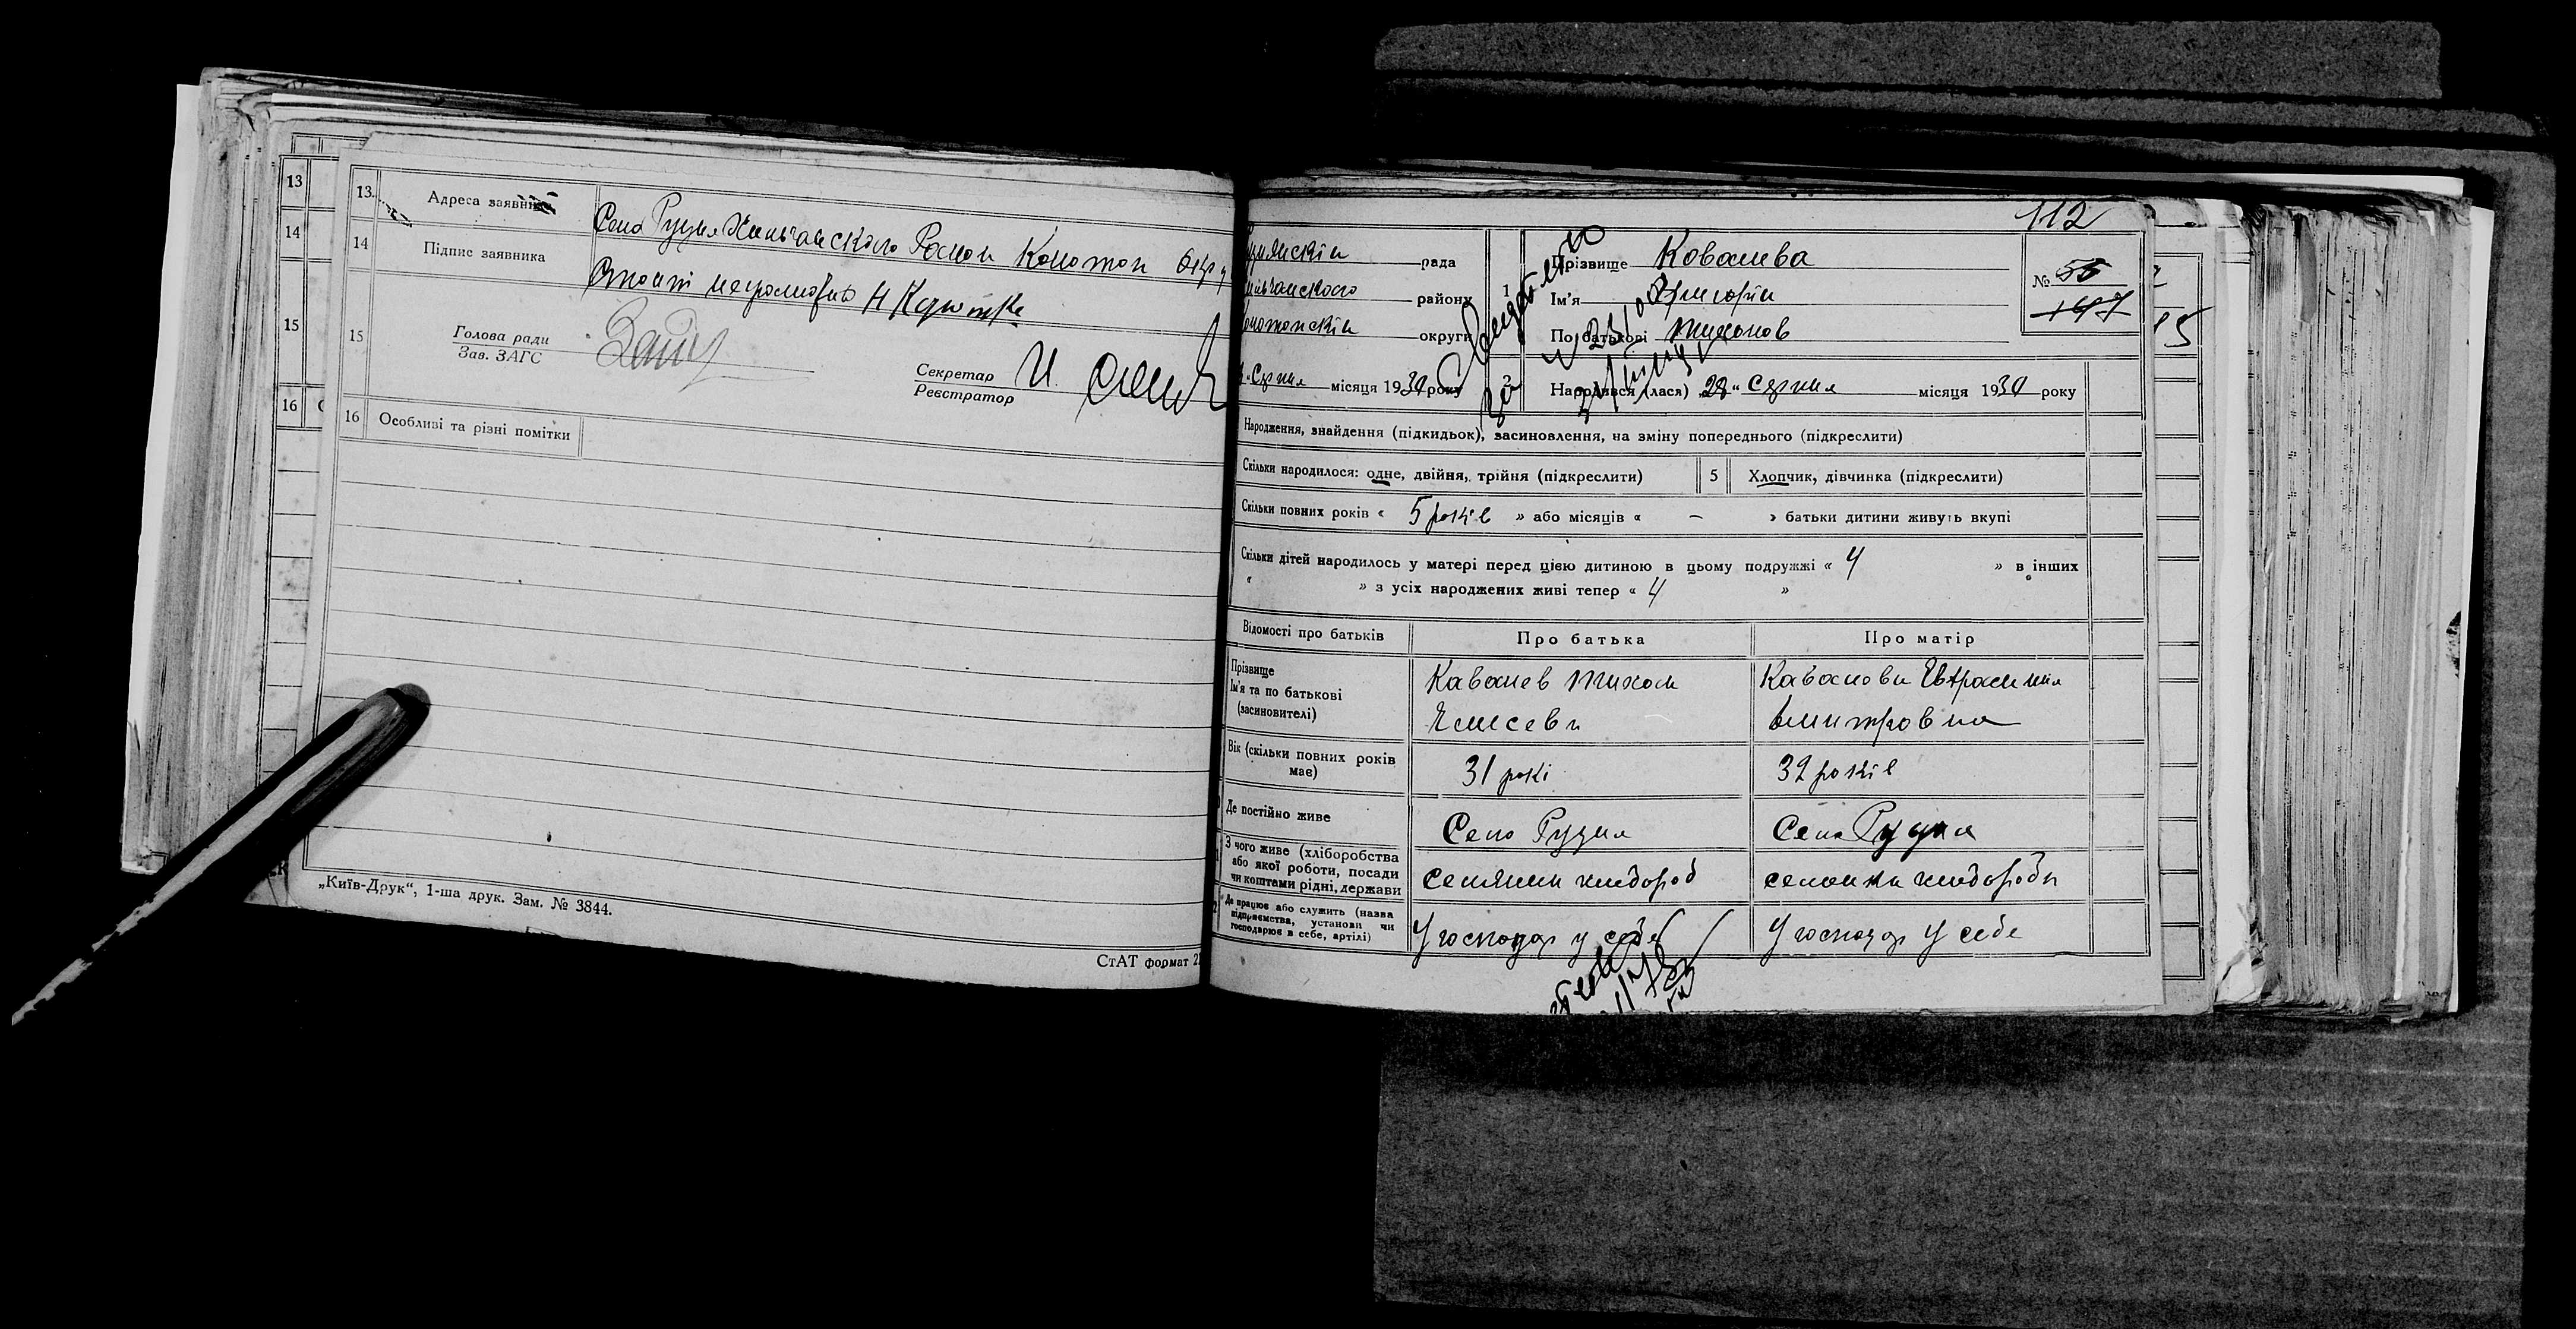 13
14
15
16
13
Адреса заявника
Село Рудня
14
Підпис заявника
15
Голова ради
Зав. ЗАГС
Секретар
Реєстратор
И.
16
Особливі та різні помітки
„Київ-Друк“, 1-ша друк. Зам. № 3844.
СтАТ формат
112
рада
району
округи
1
Прізвище Ковалева
Ім'я
По батькові Тихонов
№ 55
місяця 1930 року
2
Народився (лася) „28“ серпня місяця 1930 року
Народження, знайдення (підкидьок), засиновлення, на зміну попереднього (підкреслити)
Скільки народилося: одне, двійня, трійня (підкреслити)
5
Хлопчик, дівчинка (підкреслити)
Скільки повних років « 5 років » або місяців « – » батьки дитини живуть вкупі
Скільки дітей народилось у матері перед цією дитиною в цьому подружжі « 4 » в інших
« » з усіх народжених живі тепер « 4 »
Відомості про батьків
Про батька
Про матір
Прізвище
Ім'я та по батькові
(засиновителі)
Кавалев Тихон
Елисеви
Кавалова Евфросиния
Дмитровна
Вік (скільки повних років
має)
31 рокі
32 років
Де постійно живе
Село Рудня
Село Рудня
З чого живе (хліборобства
або якої роботи, посади
чи коштами рідні, держави
селянин хлибороб
селянка хлибороби
Де працює або служить (назва
підприємства, установи чи
господарює в себе, артілі)
У господар у себе
У господар у себе